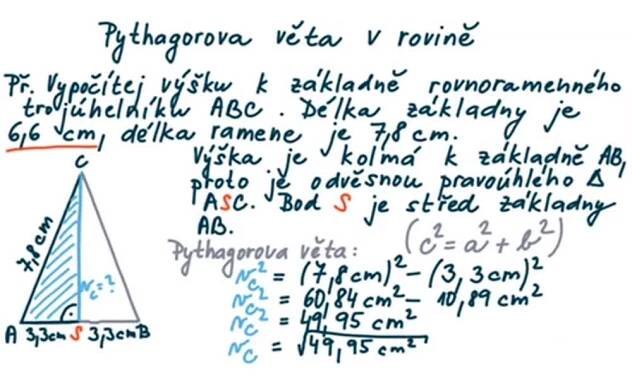 Pythagorova věta v rovině
Př. Vypočítej výšku k základně rovnoramenného
trojúhelníku ABC. Délka základny je
6,6 cm, délka ramene je 7,8 cm.
Výška je kolmá k základně AB,
proto je odvěsnou pravoúhlého Δ
ASC. Bod S je střed základny
AB.
Pythagorova věta: (c² = a² + b²)
v_c² = (7,8 cm)² - (3,3 cm)²
v_c² = 60,84 cm² - 10,89 cm²
v_c² = 49,95 cm²
v_c = √49,95 cm²
C
7,8 cm
v_c = ?
A 3,3 cm S 3,3 cm B